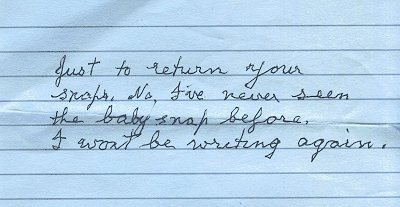 Just to return your
snaps. No, I've never seen
the baby snap before.
I wont be writing again.